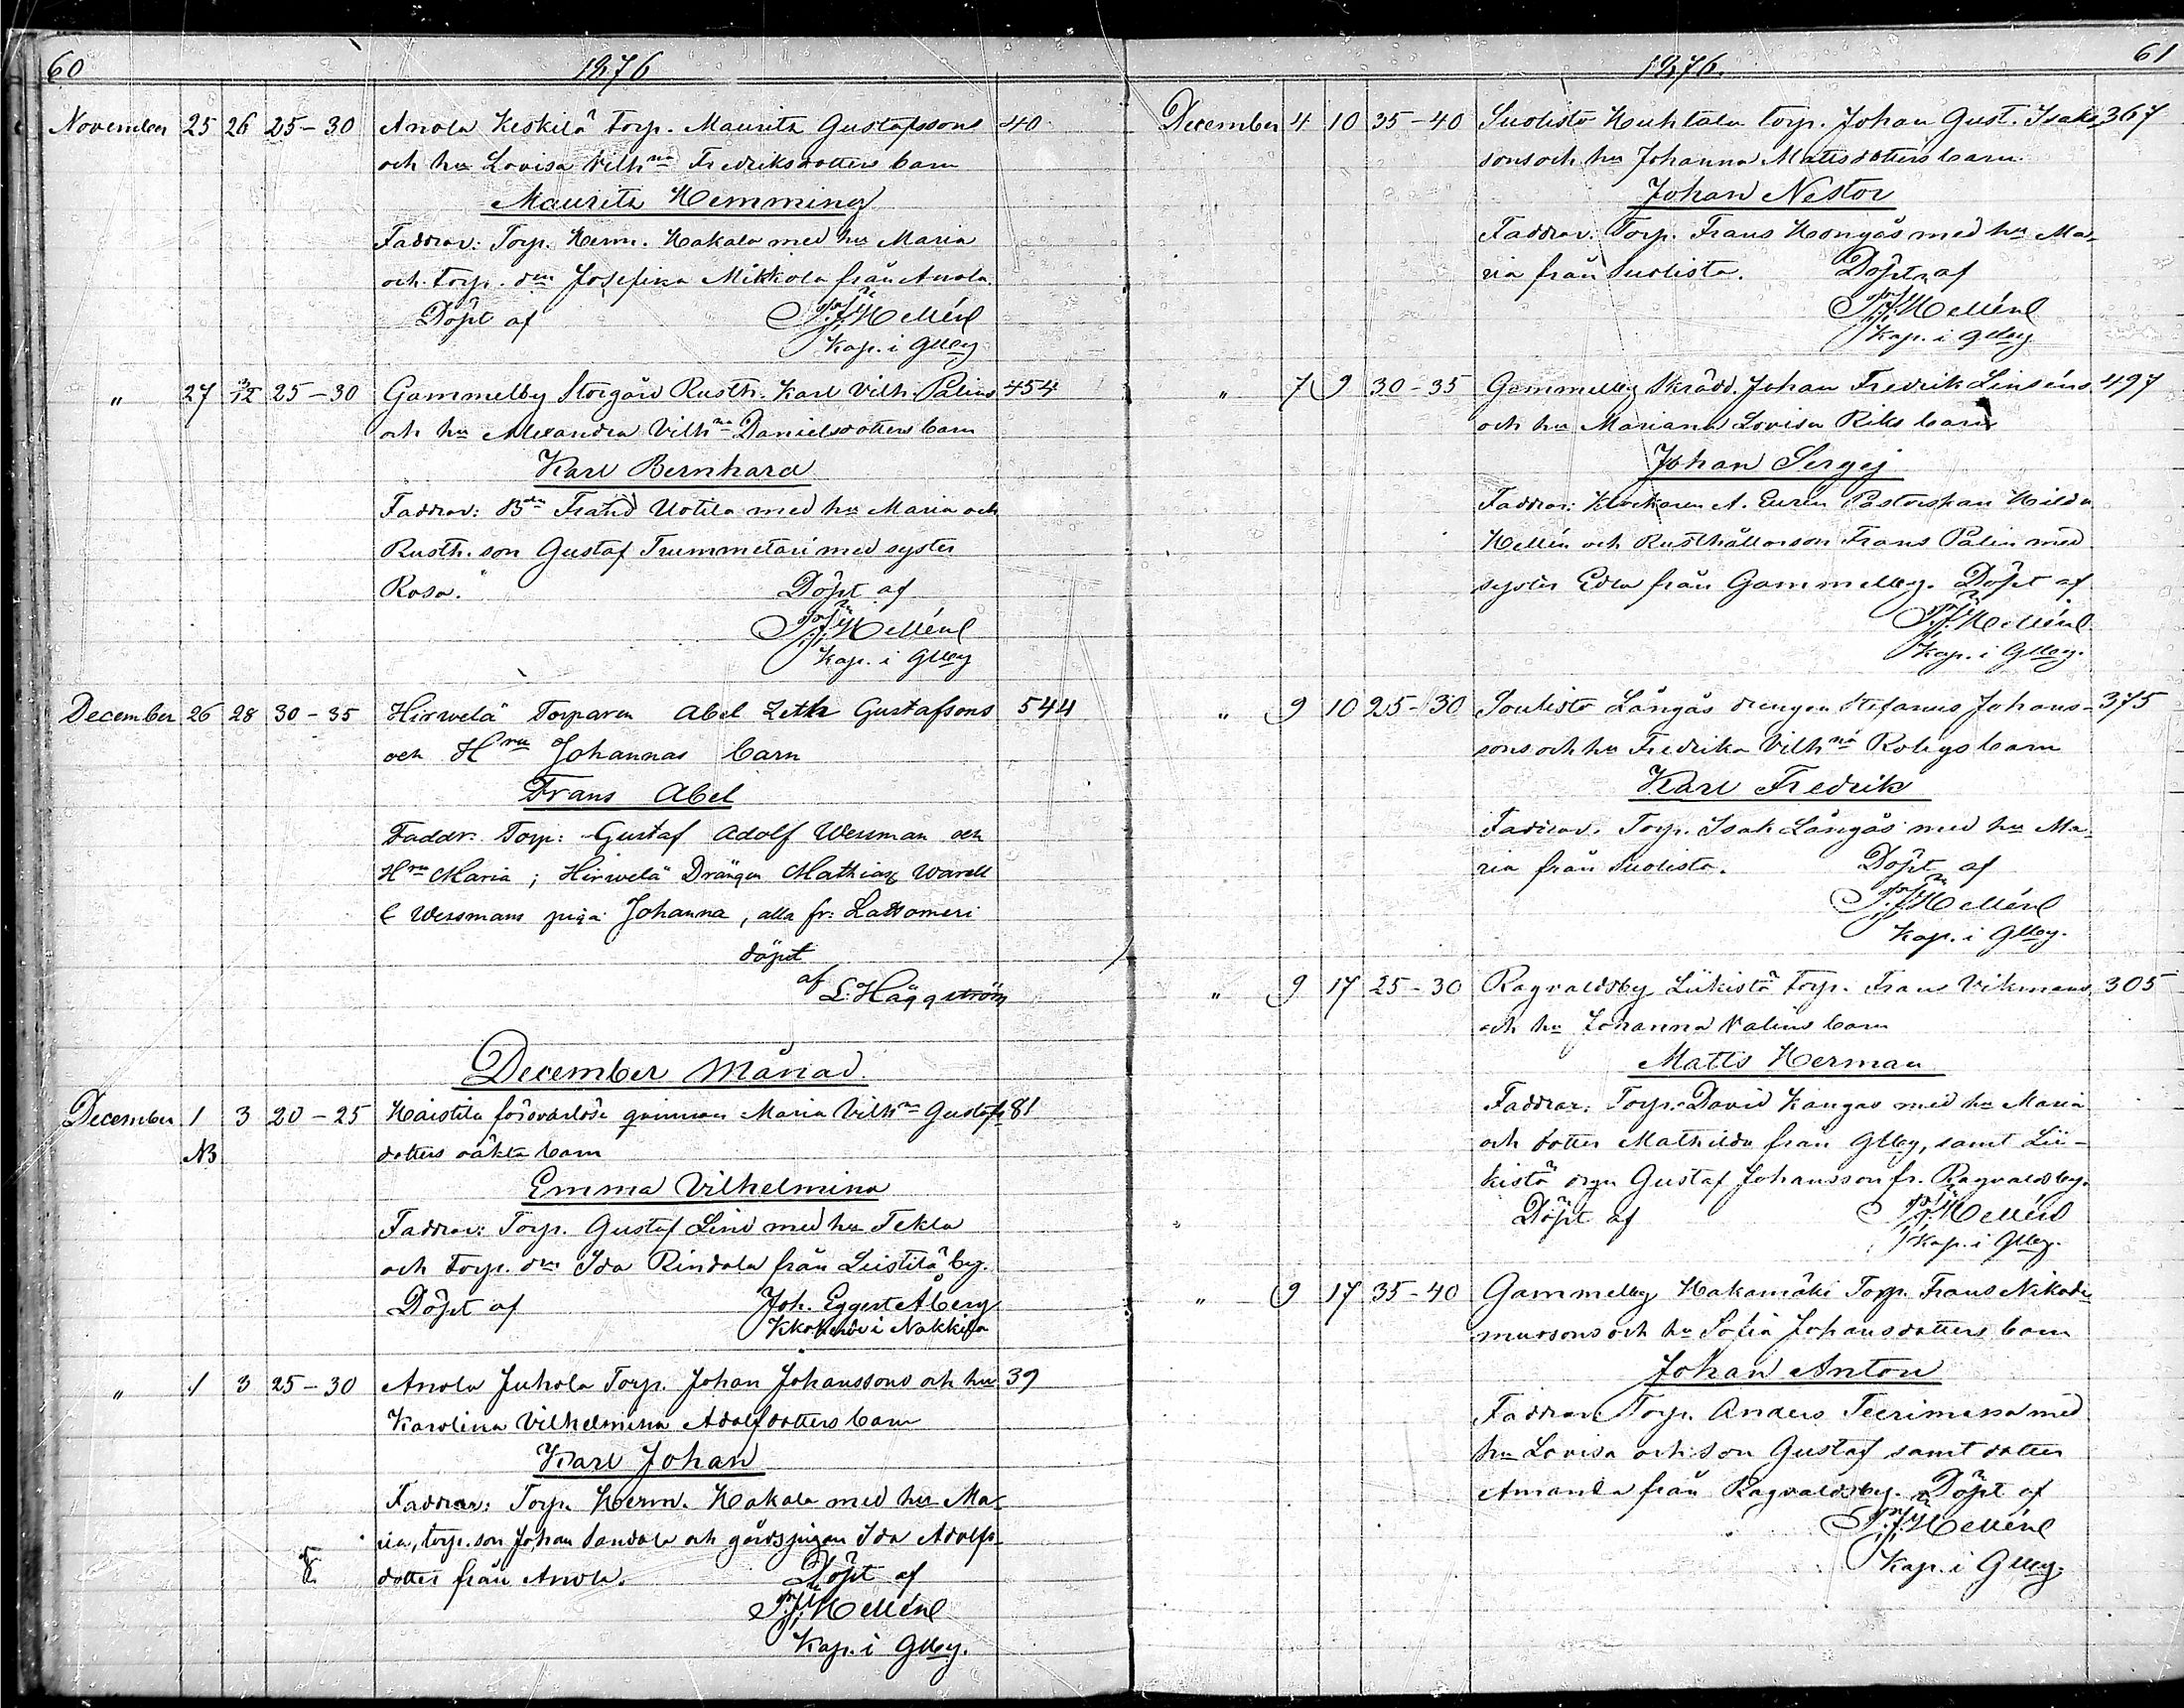 60
1876
November 25 26 25-30 Anola Keskilä torp. Mauritz Gustafssons 40
och hu Lovisa Vilhna Fredriksdotters barn
Mauritz Hemming
Faddrar: Torp. Herm. Hakala med hu Maria
och torp. dn Josefina Mikkola från Anola.
Döpt af Hellén
Kap. i Glby
" 27 3/12 25-30 Gammelby Storgård Rusth. Karl Vilh. Palins 454
och hu Alexandra Vilhna Danielsdotters barn
Karl Bernhard
Faddrar: Bdn Frand Uotila med hu Maria och
Rusth. son Gustaf Trummetari med syster
Rosa. Döpt af
Hellén
Kap. i Glby
December 26 28 30-35 Hirwelä Torparen Abel Zeth Gustafsons 544
och Hru Johannas barn
Frans Abel
Faddr. Torp: Gustaf Adolf Wessman och
Hru Maria; Hirwelä Drängen Mathias Warell
& Wessmans piga Johanna, alla fr: Lattomeri
döpt
af L: Häggström
December Månad.
December 1 3 20-25 Haistila försvarlösa qvinnan Maria Vilhna Gustafs- 81
NB dotters oäkta barn
Emma Vilhelmina
Faddrar: Torp. Gustaf Lind med hu Tekla
och torp. dn Ida Rindala från Leistilä by.
Döpt af Joh. Eggert Åberg
i Nakkila
" 1 3 25-30 Anola Juhola Torp. Johan Johanssons och hu 39
Karolina Vilhelmina Adolfdotters barn
Karl Johan
Faddrar: Torp. Herm. Hakala med hu Ma-
ria, torp. son Johan Sandola och gårdspigan Ida Adolfs-
dotter från Anola. Döpt af
Hellén
Kap. i Glby.
61
1876.
December 4 10 35-40 Suolisto Huhtala torp. Johan Gust. Isaks- 367
sons och hu Johanna Mattsdotters barn.
Johan Nestor
Faddrar: Torp. Frans Hongås med hu Ma-
ria från Suolisto. Döpt af
Hellén
Kap. i Glby
" 7 9 30-35 Gammelby Skrädd. Johan Fredrik Linséns 497
och hu Mariana Lovisa Riks barn
Johan Sergej
Faddrar: Klockaren A. Eurén Pastorskan Hilda
Hellén och Rusthållarson Frans Palin med
syster Edla från Gammelby. Döpt af
Hellén
Kap. i Glby.
" 9 10 25-30 Soulisto Långås drengen Stefanus Johans- 375
sons och hu Fredrika Vilhna barn
Karl Fredrik
Faddrar: Torp. Isak Långås med hu Ma-
ria från Suolisto. Döpt af
Hellén
Kap. i Glby.
" 9 17 25-30 Ragvaldsby Liikistö torp. Frans Vikmans 305
och hu Johanna Valins barn
Matts Herman
Faddrar: Torp: David Kangas med hu Maria
och dotter Mathilda från Glby, samt Lii-
kistö drgn Gustaf Johansson fr. Ragvaldsby.
Döpt af Hellén
Kap. i Glby.
" 9 17 35-40 Gammelby Hakamäki Torp. Frans Nikode-
mussons och hu Sofia Johansdotters barn
Johan Anton
Faddrar: Torp. Anders Teerimessa med
hu Lovisa och son Gustaf samt dotter
Amanda från Ragvaldsby. Döpt af
Hellén
Kap. i Glby.